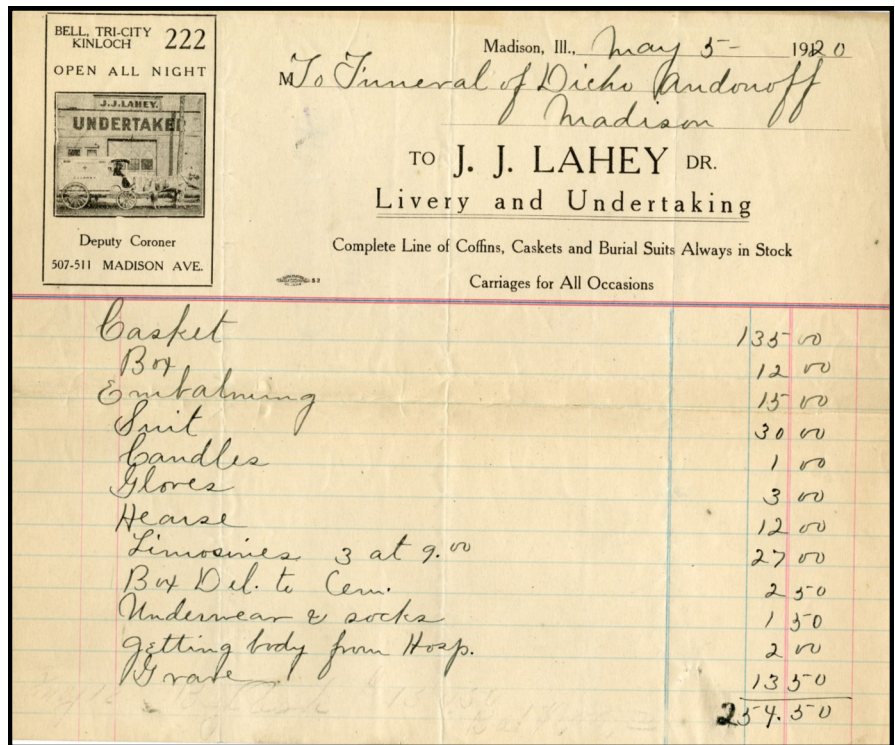 BELL, TRI-CITY
KINLOCH 222
OPEN ALL NIGHT
J.J. LAHEY.
UNDERTAKER
Deputy Coroner
507-511 MADISON AVE.
Madison, Ill., May 5- 1920
M To Funeral of Dicho Andonoff
Madison
TO J. J. LAHEY DR.
Livery and Undertaking
Complete Line of Coffins, Caskets and Burial Suits Always in Stock
Carriages for All Occasions
Casket 135 00
Box 12 00
Embalming 15 00
Suit 30 00
Candles 1 00
Gloves 3 00
Hearse 12 00
Limosines 3 at 9.00 27 00
Box Del. to Cem. 2 50
Underwear & socks 1 50
getting body from Hosp. 2 00
Grave 13 50
254.50